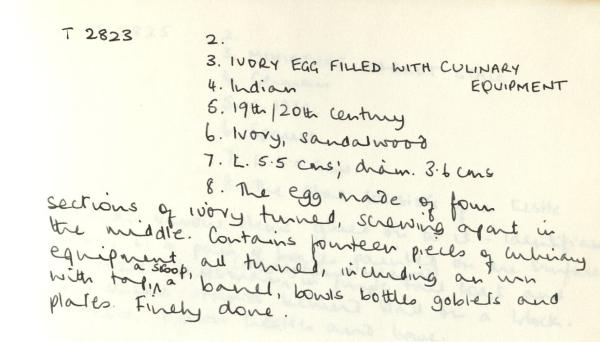 T 2823 2.
3. IVORY EGG FILLED WITH CULINARY
EQUIPMENT
4. Indian
5. 19th/20th century
6. Ivory, sandalwood
7. L. 5.5 cms; diam. 3.6 cms
8. The egg made of four
sections of ivory turned, screwing apart in
the middle. Contains fourteen pieces of culinary
equipment, all turned, including an urn
with tap, a stoop, a barrel, bowls bottles goblets and
plates. Finely done.